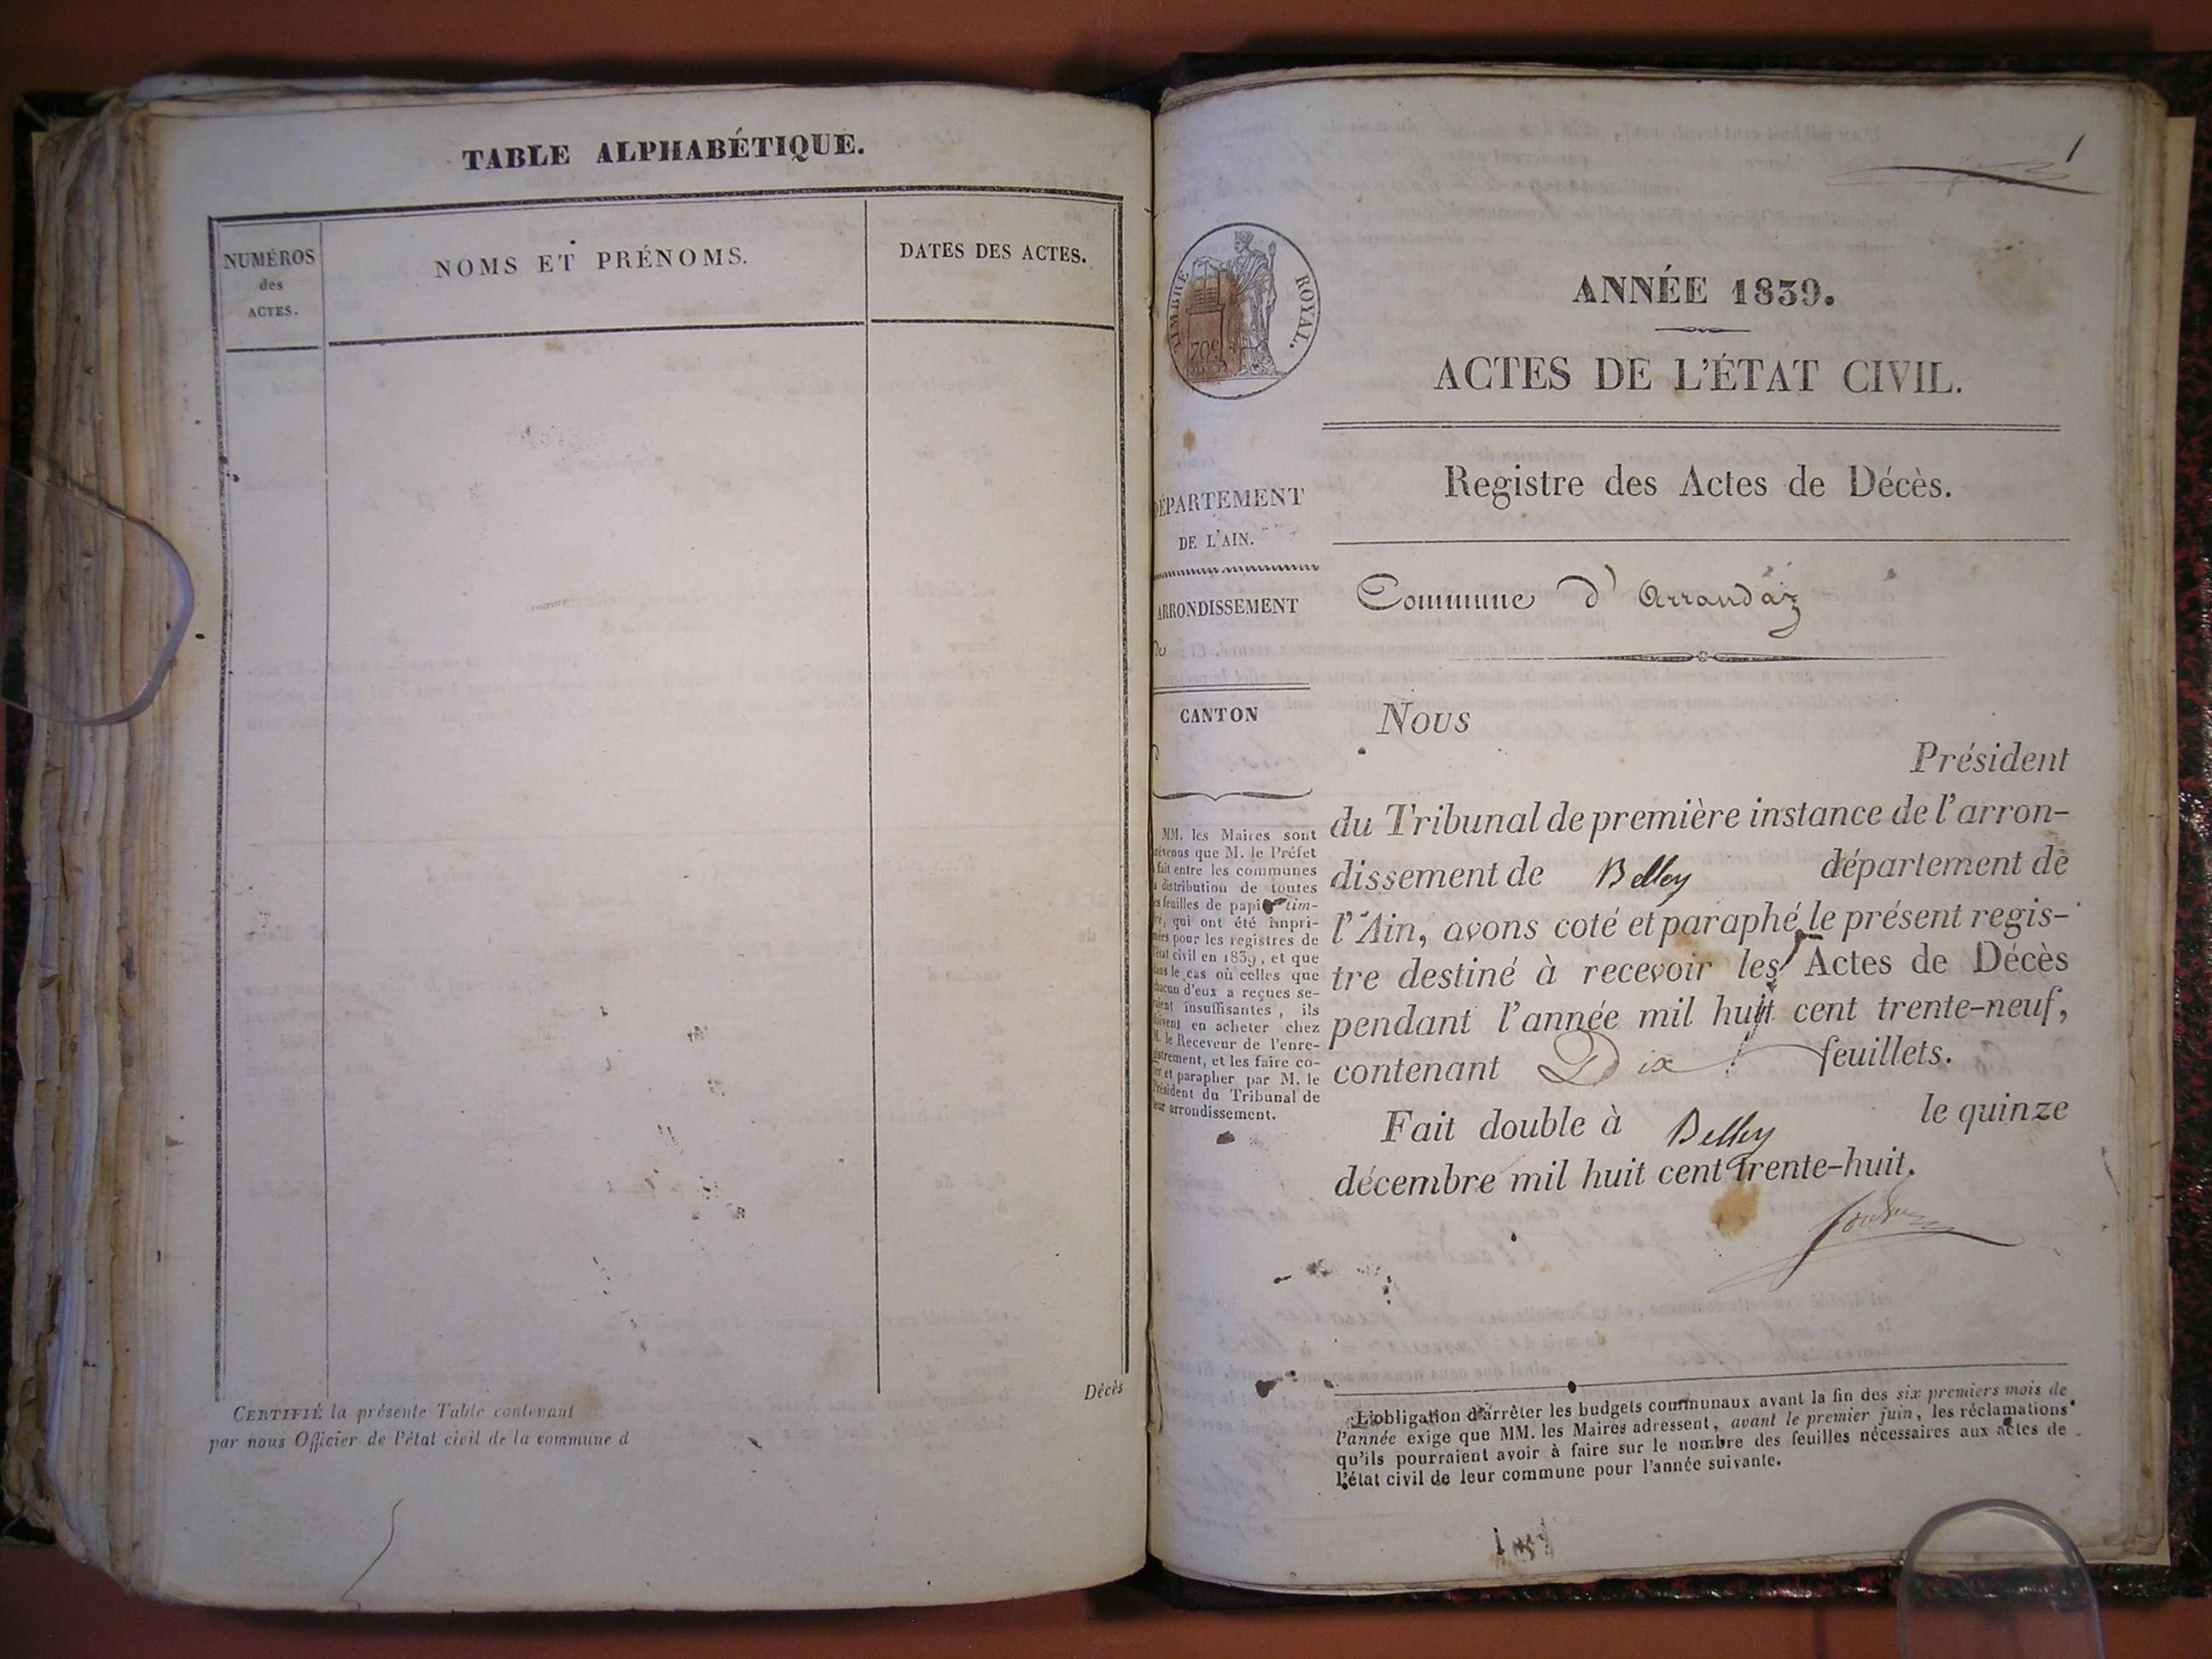 TABLE ALPHABÉTIQUE.
NUMÉROS
des
ACTES.
NOMS ET PRÉNOMS.
DATES DES ACTES.
Décès
CERTIFIÉ la présente Table contenant
par nous Officier de l'état civil de la commune d
1
TIMBRE ROYAL.
70c
ANNÉE 1839.
ACTES DE L'ÉTAT CIVIL.
Registre des Actes de Décès.
DÉPARTEMENT
DE L'AIN.
ARRONDISSEMENT
de
CANTON
d
MM. les Maires sont
prévenus que M. le Préfet
a fait entre les communes
la distribution de toutes
les feuilles de papier tim-
bré, qui ont été impri-
mées pour les registres de
l'état civil en 1839, et que
dans le cas où celles que
chacun d'eux a reçues se-
raient insuffisantes, ils
doivent en acheter chez
M. le Receveur de l'enre-
gistrement, et les faire co-
ter et parapher par M. le
Président du Tribunal de
leur arrondissement.
Commune d'Arrandaz
Nous
Président
du Tribunal de première instance de l'arron-
dissement de Belley département de
l'Ain, avons coté et paraphé le présent regis-
tre destiné à recevoir les Actes de Décès
pendant l'année mil huit cent trente-neuf,
contenant Dix feuillets.
Fait double à Belley le quinze
décembre mil huit cent trente-huit.
L'obligation d'arrêter les budgets communaux avant la fin des six premiers mois de
l'année exige que MM. les Maires adressent, avant le premier juin, les réclamations
qu'ils pourraient avoir à faire sur le nombre des feuilles nécessaires aux actes de
l'état civil de leur commune pour l'année suivante.